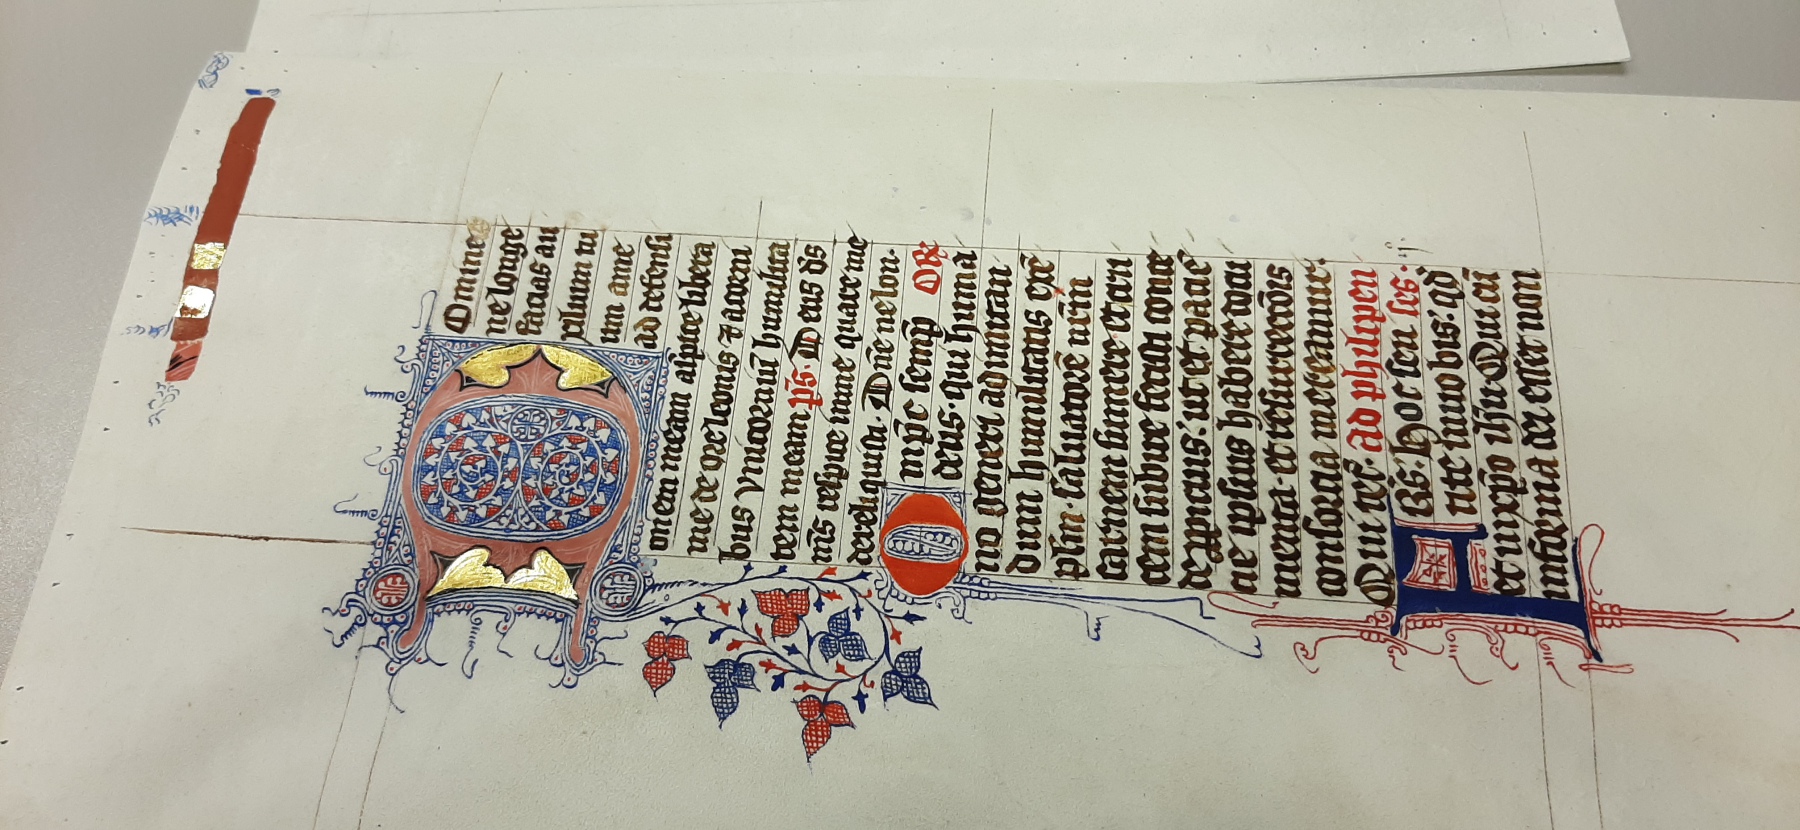 Domine
ne longe
facias au
xilium tu
um a me
ad defensi
onem meam aspice libera
me de ore leonis ⁊ a corni
bus vnicorniū humilita
tem meam p̄s. Deus ds
m̄s respice in me quare me
dereliquisti. Dn̄e ne lon.
Omp̄c semp̄ Or̄
deus qui huma
no generi ad imitan
dum humilitatis exē
plm̄ saluatorē nr̄m
carnem sumere et cru
cem subire fecisti conce
de propicius. ut et paciē
cie ipsius habere docu
menta. et resurrectōis
consorcia mereamur.
Qui tec̄. ad philipen
Frs̄. Hoc sen ses.
tite in uobis. qd̄
et in xp̄o ih̄u. Qui cū
in forma dei esset non